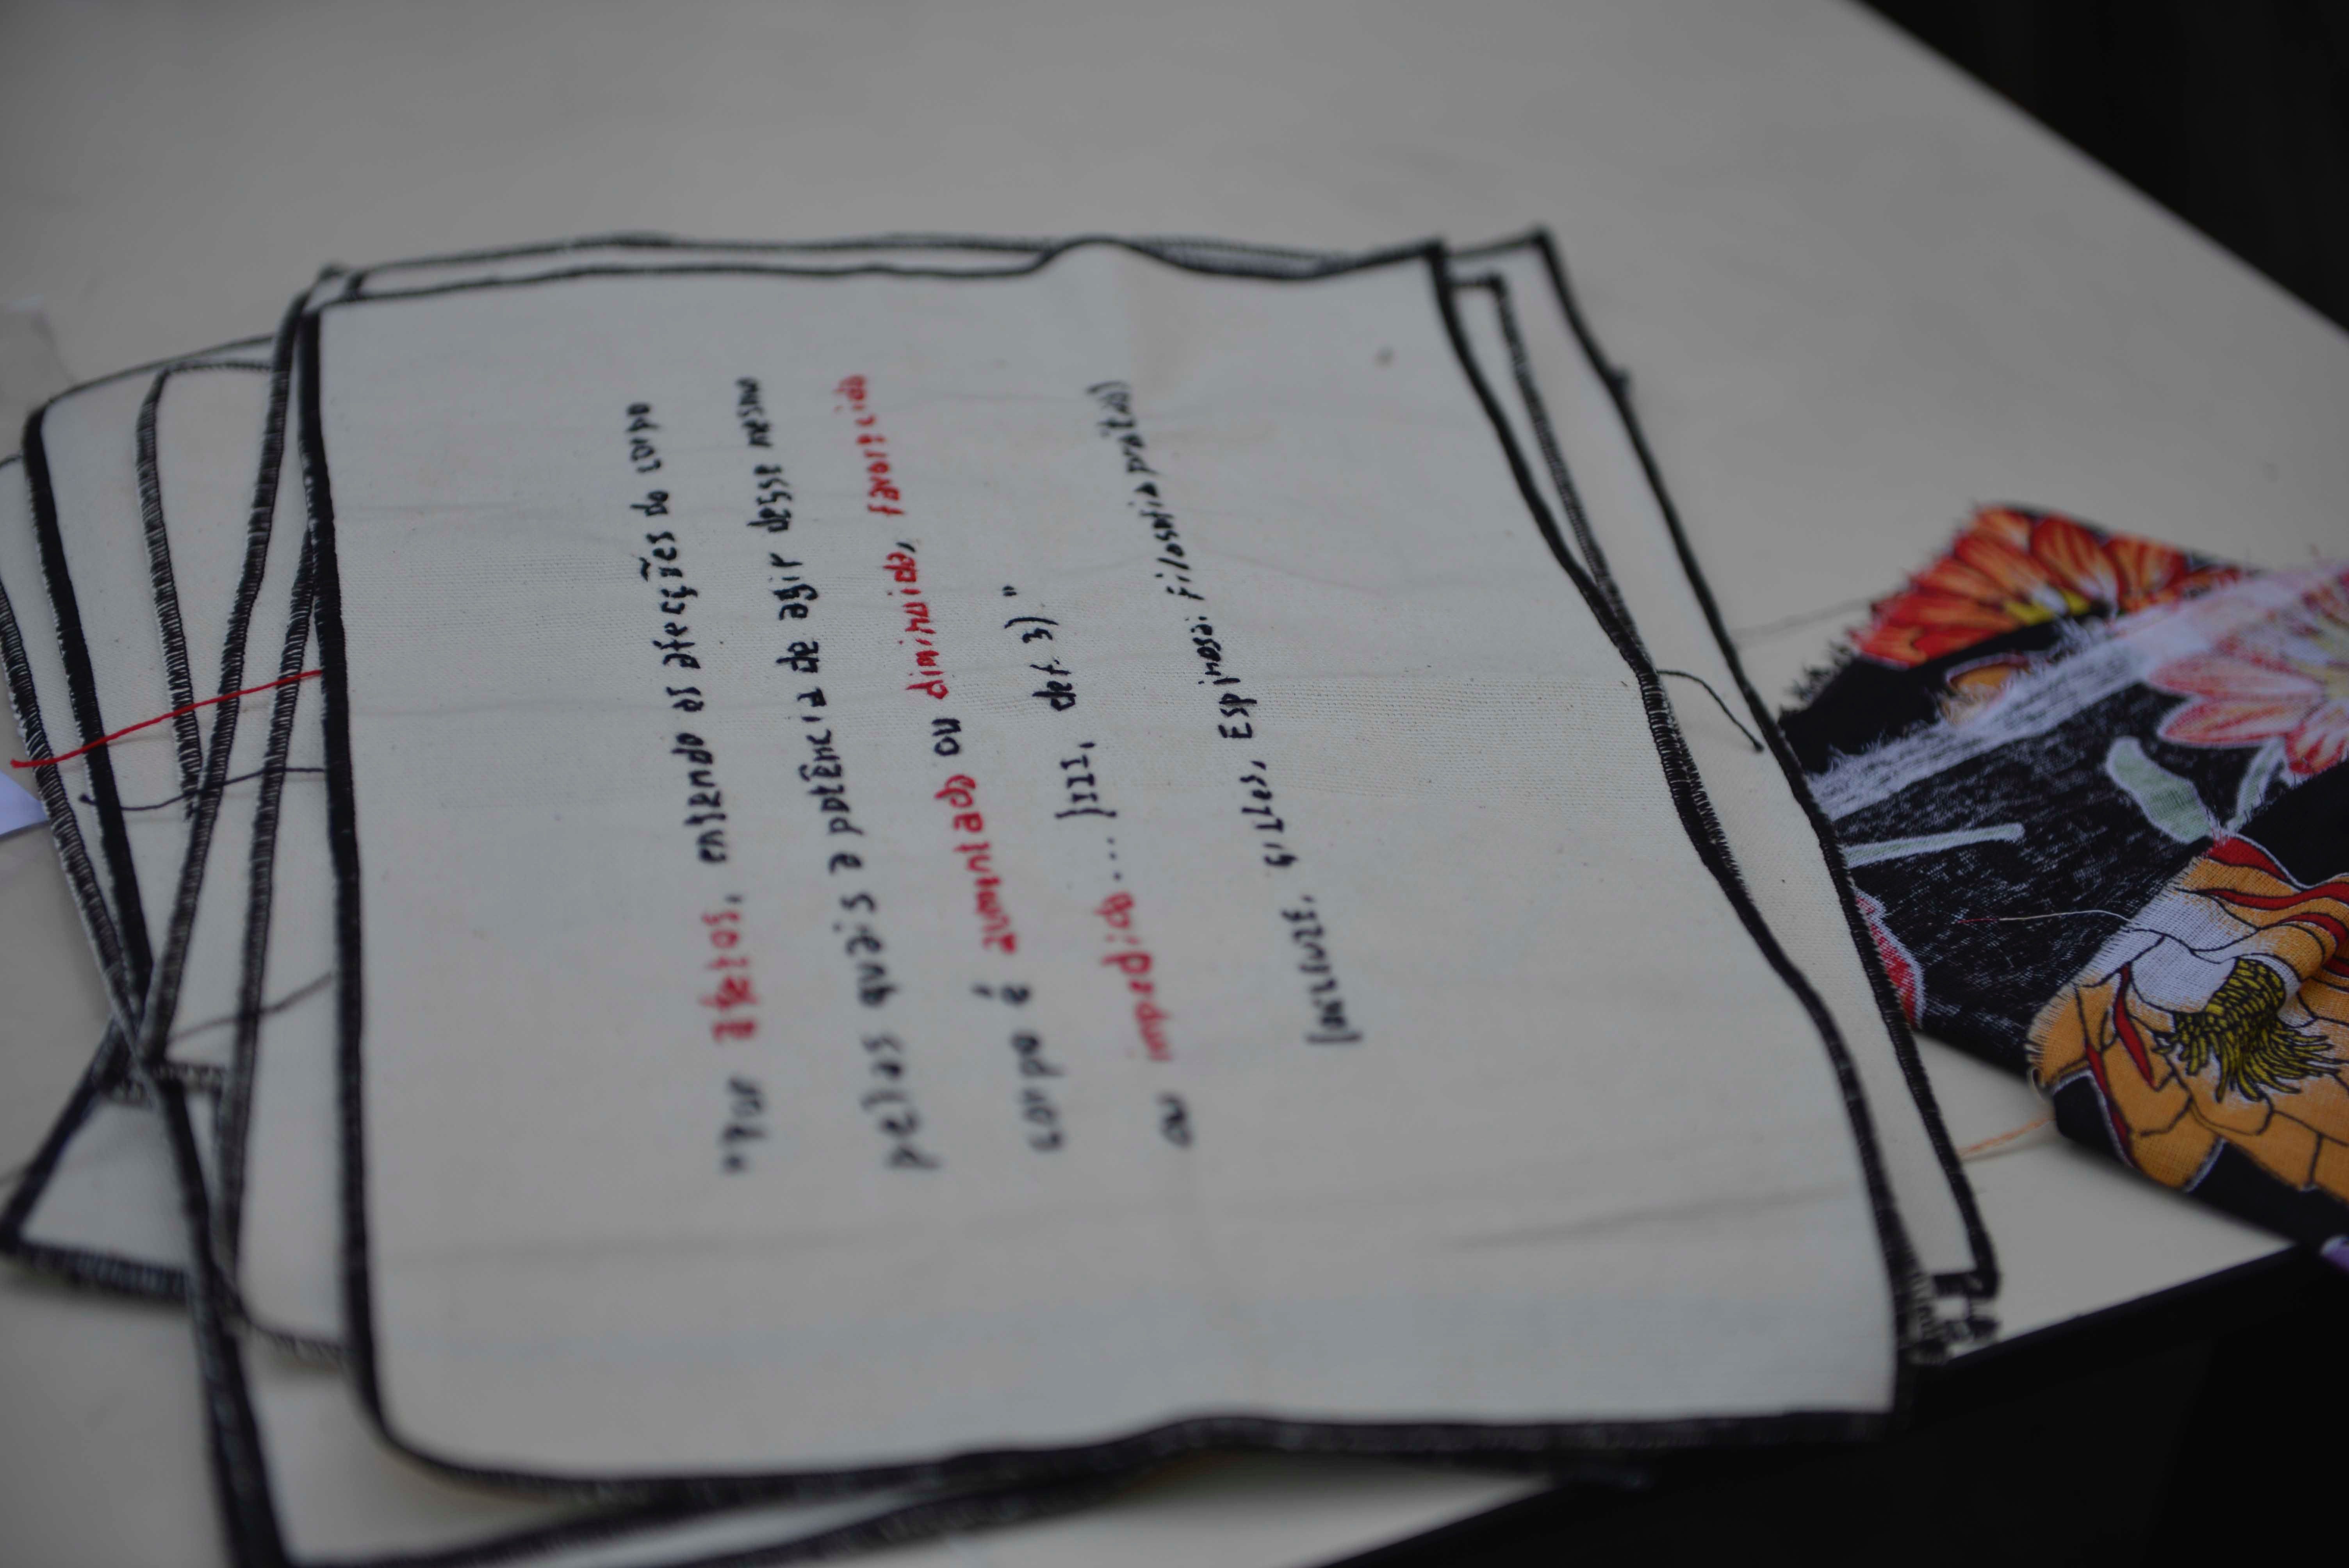 "Por afetos, entendo as afecções do corpo
pelas quais a potência de agir desse mesmo
corpo é aumentada ou diminuida, favorecida
ou impedida... (III, def. 3)"
(DELEUZE, GILLES, Espinosa: Filosofia prática)